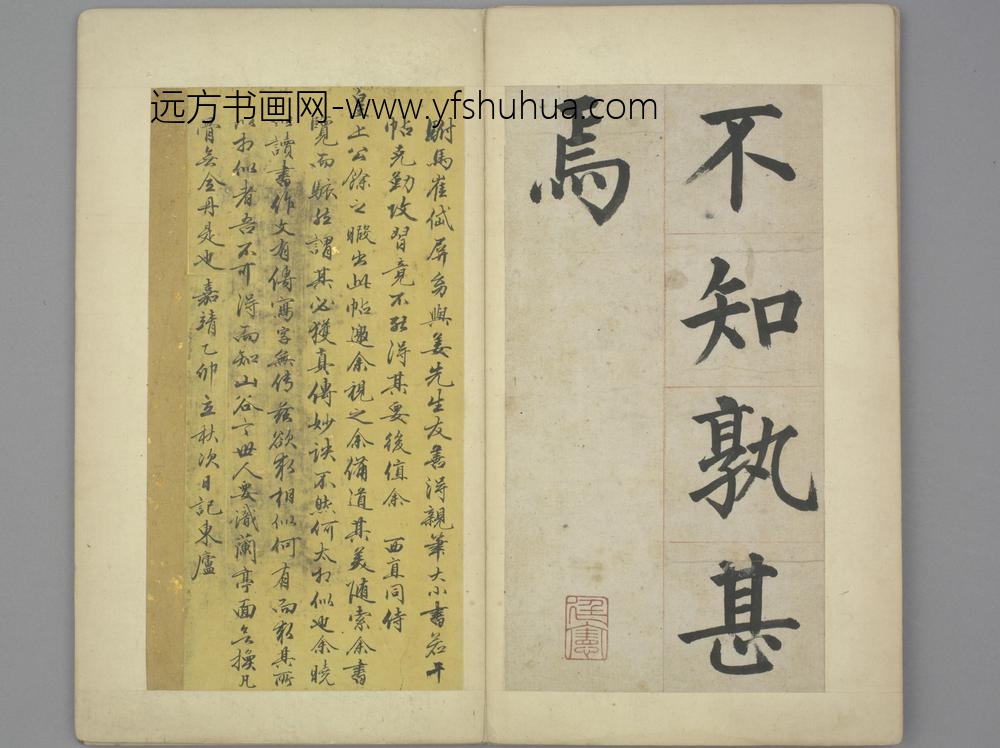 远方书画网-www.yfshuhua.com
不知孰甚
焉
駙馬崔岱屏翁與姜先生友善得親筆大小書若干
帖克勤攻習竟不能得其要後值余 西直同侍
皇上公餘之暇出此帖邀余視之余備道其美隨索余書
覽而駭然謂其必獲真傳妙訣不然何太相似也余曉
以讀書作文有傳寫字無传茲欲求相似何有而求其所
以相似者吾不可得而知山谷云世人要識蘭亭面無換凡
骨無金丹是也嘉靖乙卯立秋次日記東廬